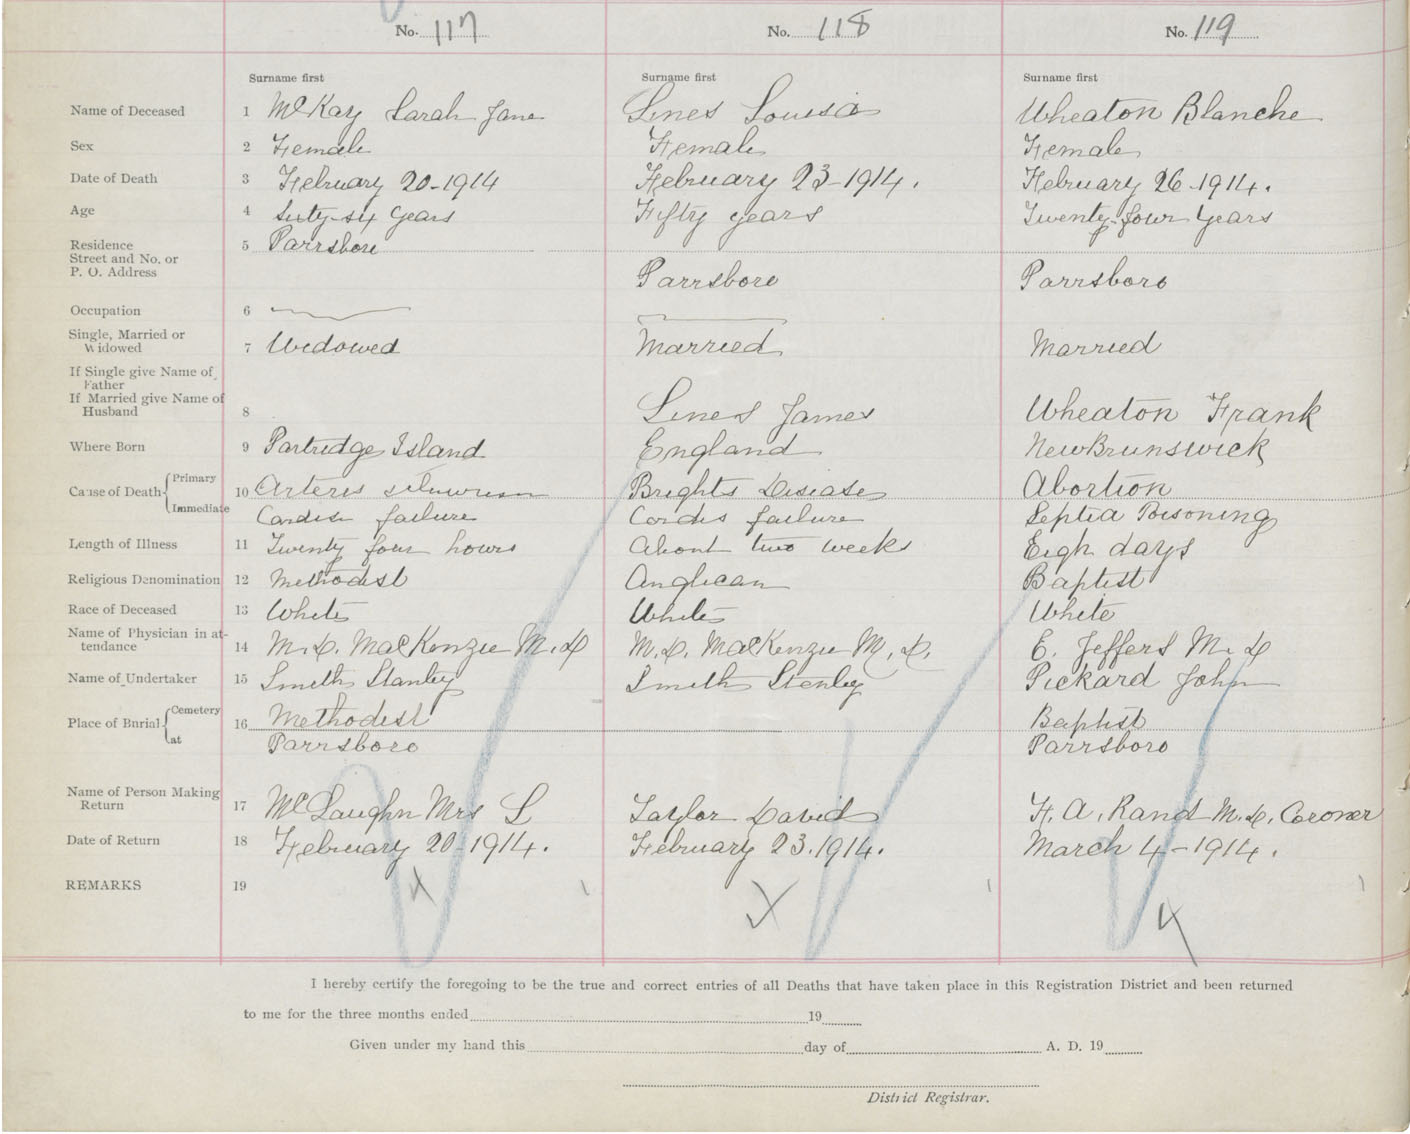 No. 117 No. 118 No. 119
Surname first Surname first Surname first
Name of Deceased 1 McKay Sarah Jane Lines Louisa Wheaton Blanche
Sex 2 Female Female Female
Date of Death 3 February 20-1914 February 23-1914. February 26-1914.
Age 4 Sixty-six years Fifty years Twenty-four years
Residence 5 Parrsboro
Street and No. or
P. O. Address Parrsboro Parrsboro
Occupation 6
Single, Married or
Widowed 7 Widowed Married Married
If Single give Name of
Father
If Married give Name of
Husband 8 Lines James Wheaton Frank
Where Born 9 Partridge Island England New Brunswick
Cause of Death Primary 10 Arteris Brights Disease Abortion
Immediate failure Cordis failure Septia Poisoning
Length of Illness 11 Twenty four hours About two weeks Eigh days
Religious Denomination 12 Methodist Anglican Baptist
Race of Deceased 13 White White White
Name of Physician in at-
tendance 14 M.D. MacKenzie M.D M.D. MacKenzie M.D. E. Jeffers M.D
Name of Undertaker 15 Smith Stanley Smith Stanley Pickard John
Place of Burial Cemetery 16 Methodist Baptist
at Parrsboro Parrsboro
Name of Person Making
Return 17 McLaughn Mrs L Taylor David F. A. Rand M.D. Coroner
Date of Return 18 February 20-1914. February 23.1914. March 4-1914.
REMARKS 19
I hereby certify the foregoing to be the true and correct entries of all Deaths that have taken place in this Registration District and been returned
to me for the three months ended 19
Given under my hand this day of A. D. 19
District Registrar.